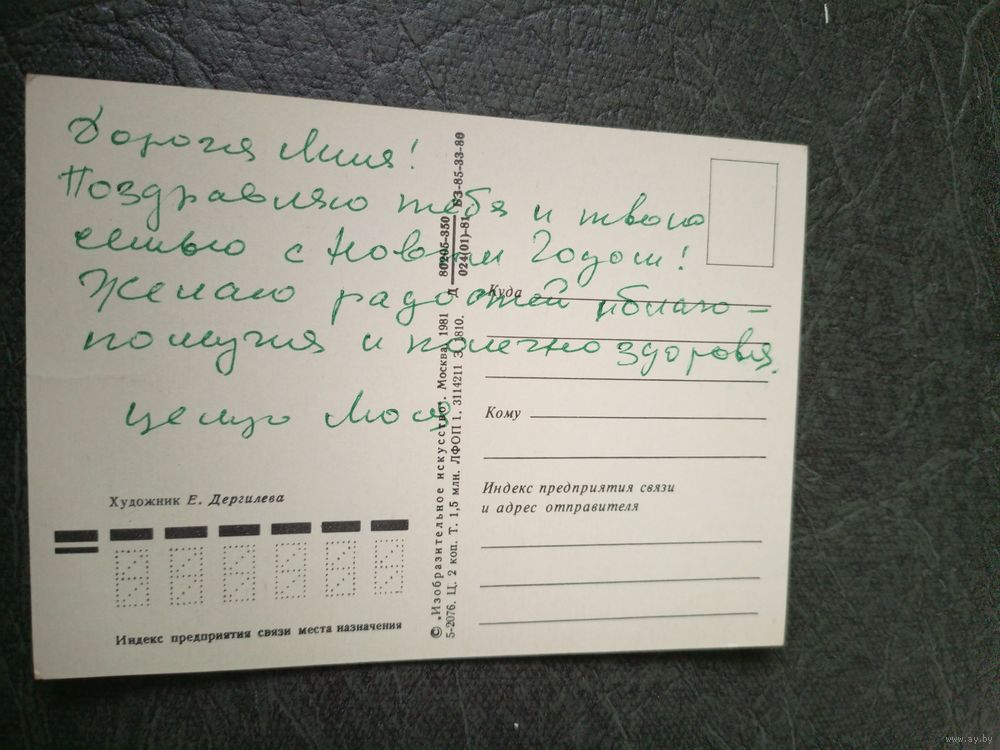 Дорогая Лиля!
Поздравляю тебя и твою
семью с Новым Годом!
Желаю радостей, благо-
получия и конечно здоровья.
Целую Люся
Художник Е. Дергилева
Индекс предприятия связи места назначения
© „Изобразительное искусство". Москва. 1981
5-2076. Ц. 2 коп. Т. 1,5 млн. ЛФОП 1. 3114211 З. 1810.
Д 80205-350 БЗ-85-33-80
024(01)-81
Куда
Кому
Индекс предприятия связи
и адрес отправителя
www.ay.by